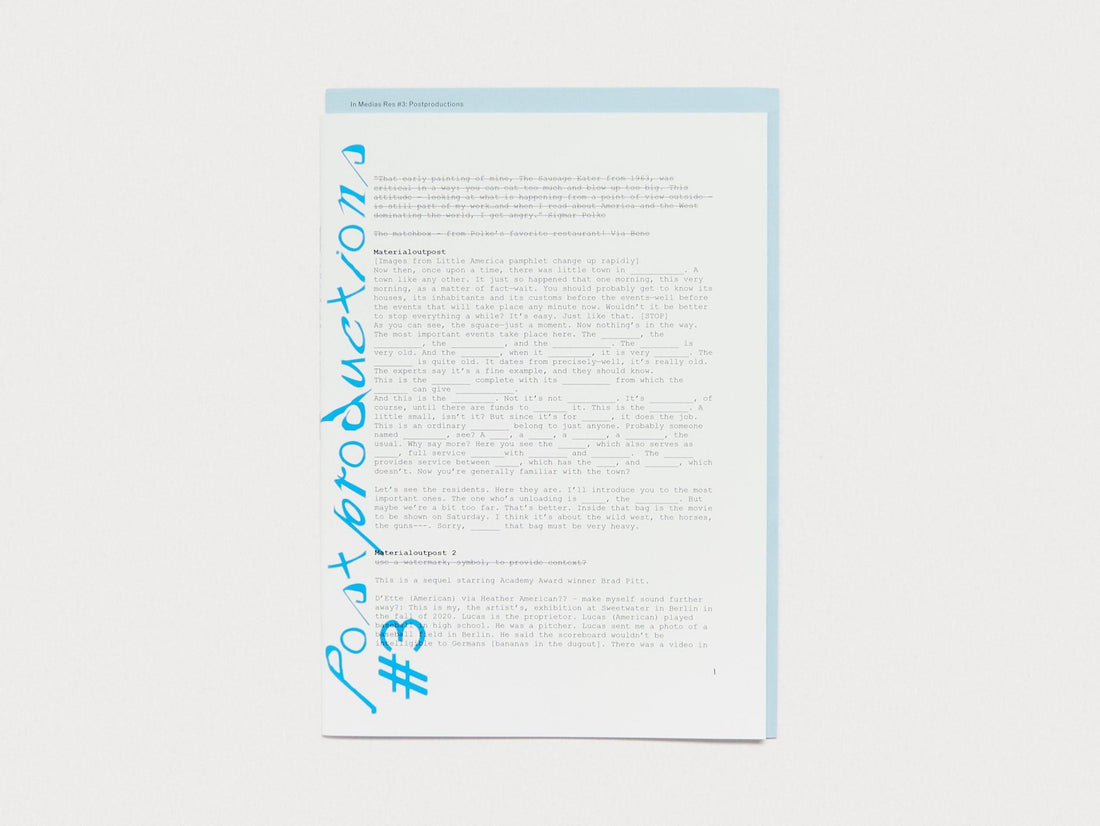 In Medias Res #3: Postproductions
Postproductions
#3
"That early painting of mine, The Sausage Eater from 1963, was
critical in a way: you can eat too much and blow up too big. This
attitude – looking at what is happening from a point of view outside –
is still part of my work…and when I read about America and the West
dominating the world, I get angry." Sigmar Polke
The matchbox – from Polke's favorite restaurant! Via Beno
Materialoutpost
[Images from Little America pamphlet change up rapidly]
Now then, once upon a time, there was little town in ___________. A
town like any other. It just so happened that one morning, this very
morning, as a matter of fact—wait. You should probably get to know its
houses, its inhabitants and its customs before the events—well before
the events that will take place any minute now. Wouldn't it be better
to stop everything a while? It's easy. Just like that. [STOP]
As you can see, the square—just a moment. Now nothing's in the way.
The most important events take place here. The ________, the
__________, the ___________, and the ____________. The ________ is
very old. And the _________, when it _________, it is very _______. The
________ is quite old. It dates from precisely—well, it's really old.
The experts say it's a fine example, and they should know.
This is the ________ complete with its __________ from which the
_______ can give ____________.
And this is the _________. Not it's not __________. It's _________, of
course, until there are funds to _______ it. This is the ________. A
little small, isn't it? But since it's for ______, it does the job.
This is an ordinary ________ belong to just anyone. Probably someone
named _________, see? A _____, a ______, a _______, a ________, the
usual. Why say more? Here you see the ______, which also serves as
_____, full service _______with ________ and ________. The ______
provides service between _____, which has the ____, and _______, which
doesn't. Now you're generally familiar with the town?
Let's see the residents. Here they are. I'll introduce you to the most
important ones. The one who's unloading is _____, the _________. But
maybe we're a bit too far. That's better. Inside that bag is the movie
to be shown on Saturday. I think it's about the wild west, the horses,
the guns---. Sorry, ______ that bag must be very heavy.
Materialoutpost 2
use a watermark, symbol, to provide context?
This is a sequel starring Academy Award winner Brad Pitt.
D'Ette (American) via Heather American?? – make myself sound further
away?: This is my, the artist's, exhibition at Sweetwater in Berlin in
the fall of 2020. Lucas is the proprietor. Lucas (American) played
baseball in high school. He was a pitcher. Lucas sent me a photo of a
baseball field in Berlin. He said the scoreboard wouldn't be
intelligible to Germans [bananas in the dugout]. There was a video in
1